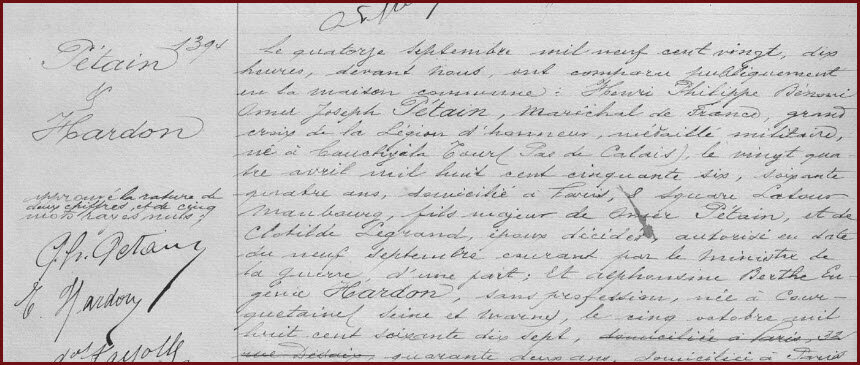 1394
Pétain
&
Hardon
approuvé la rature de
deux chiffres, et de cinq
mots rayés nuls.
Ph. Pétain
E Hardon
Le quatorze septembre mil neuf cent vingt, dix
heures, devant nous, ont comparu publiquement
en la maison commune : Henri Philippe Bénoni
Omer Joseph Pétain, Maréchal de France, grand
croix de la Légion d'honneur, médaillé militaire,
né à Cauchy à la Tour (Pas de Calais), le vingt qua
tre avril mil huit cent cinquante six, soixante
quatre ans, domicilié à Paris, 8 square Latour
Maubourg, fils majeur de Omer Pétain, et de
Clotilde Legrand, époux décédés, autorisé en date
du neuf septembre courant par le Ministre de
la guerre, d'une part ; Et Alphonsine Berthe Eu
génie Hardon, sans profession, née à Cour
quetaine (Seine et Marne), le cinq octobre mil
huit cent soixante dix sept, domiciliée à Paris, 32
rue Desaix, quarante deux ans, domiciliée à Paris